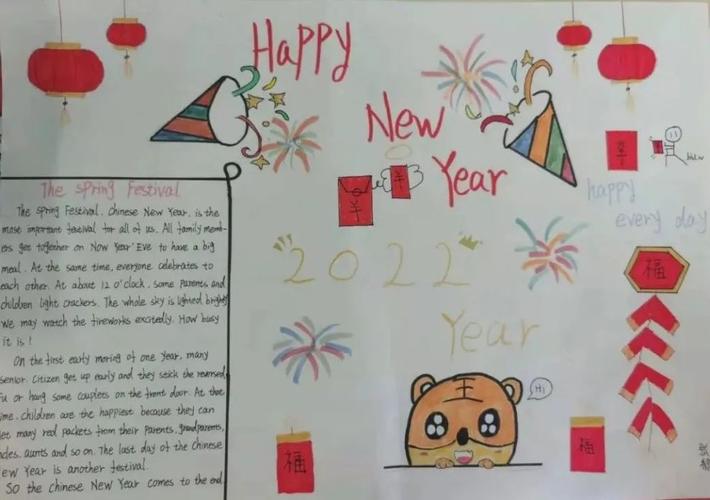 Happy
New
Year
The Spring Festival
The Spring Festival, Chinese New Year, is the
most important festival for all of us. All family memb-
ers get together on New Year' Eve to have a big
meal. At the same time, everyone celebrates to
each other. At about 12 o'clock, some parents and
children light crackers. The whole sky is lighted brightly
We may watch the fireworks excitedly. How busy
it is!
On the first early moring of one year, many
senior citizen get up early and they stick the reversed
Fu or hang some couplets on the front door. At the
me, children are the happiest because they can
et many red packets from their parents, grandparents,
ncles, aunts and so on. The last day of the Chinese
ew Year is another festival.
So the Chinese New Year comes to the end
happy
every day
2022
Year
福
王
Hi
福
福